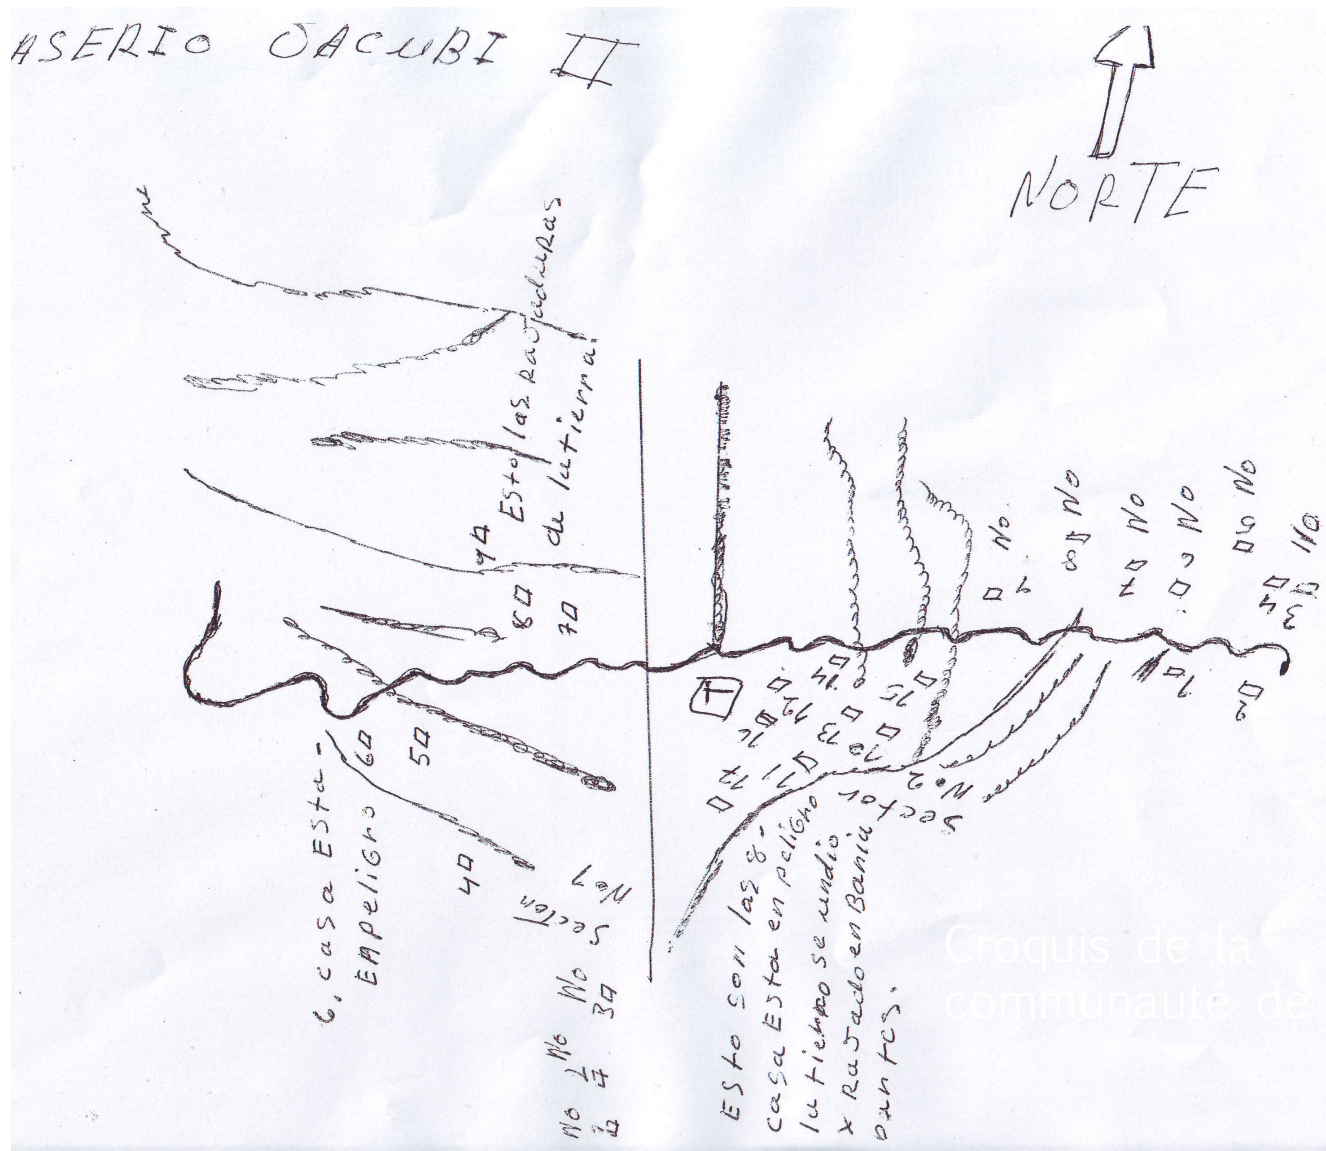 ASERIO JACUBI II
NORTE
Esto las RaJaduras
de la tierra.
6. casa Esta-
EMpeligro
Sector
No 1
Sector
No 2
ESto son las 8.
casa Esta en peligro
la tierro se undio
x RaJado en Baria
partes.
4
5
6
7
8
9
No
1
No
2
No
3
T
14
15
12
13
16
10
17
11
No
9
No
8
No
7
No
No
5
No
4
3
1
2
Croquis de la
communauté de